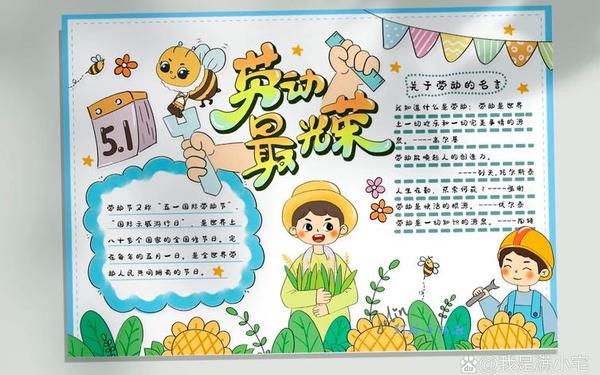 劳动
最光荣
5.1
劳动节又称“五一国际劳动节”、
“国际示威游行日”，是世界上
八十多个国家的全国性节日。定
在每年的五月一日。是全世界劳
动人民共同拥有的节日。
关于劳动的名言
我知道什么是劳动：劳动是世界
上一切欢乐和一切完美事情的源
泉。----高尔基
劳动能唤起人的创造力。
----列夫.托尔斯泰
人生在勤，不索何获？----张衡
劳动是快活的根源。----伏尔泰
劳动是一切知识的源泉。----陶铸
@我是满小宅